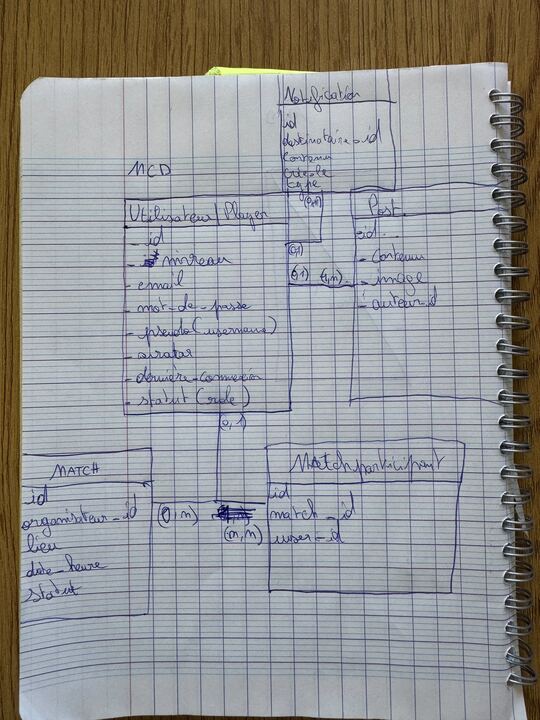 Notification
id
destinataire_id
contenu
type
MCD
Utilisateur | Player
- id
- niveau
- email
- mot_de_passe
- pseudo (username)
- avatar
- dernière_connexion
- statut (role)
(0,1)
(0,1) (1,n)
Post
id
- contenu
- image
- auteur_id
(0,1)
MATCH
id
organisateur_id
lieu
date_heure
statut
(0,n)
(n,n)
Match participant
id
match_id
user_id